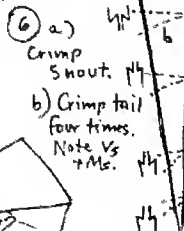 6 a)
Crimp
Snout.
b) Crimp tail
four times.
Note Vs
+ Ms.
b